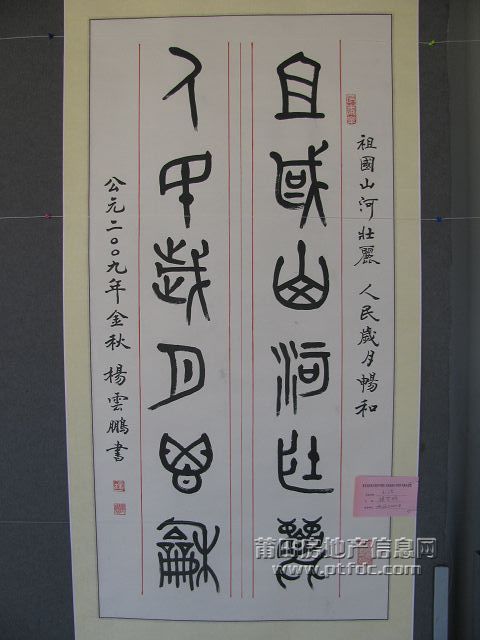 祖國山河壯麗 人民歲月暢和
且或山河壯麗
人甲歲月
龢
公元二〇〇九年金秋 楊雲鵬書
莆田房地产信息网
www.ptfdc.com